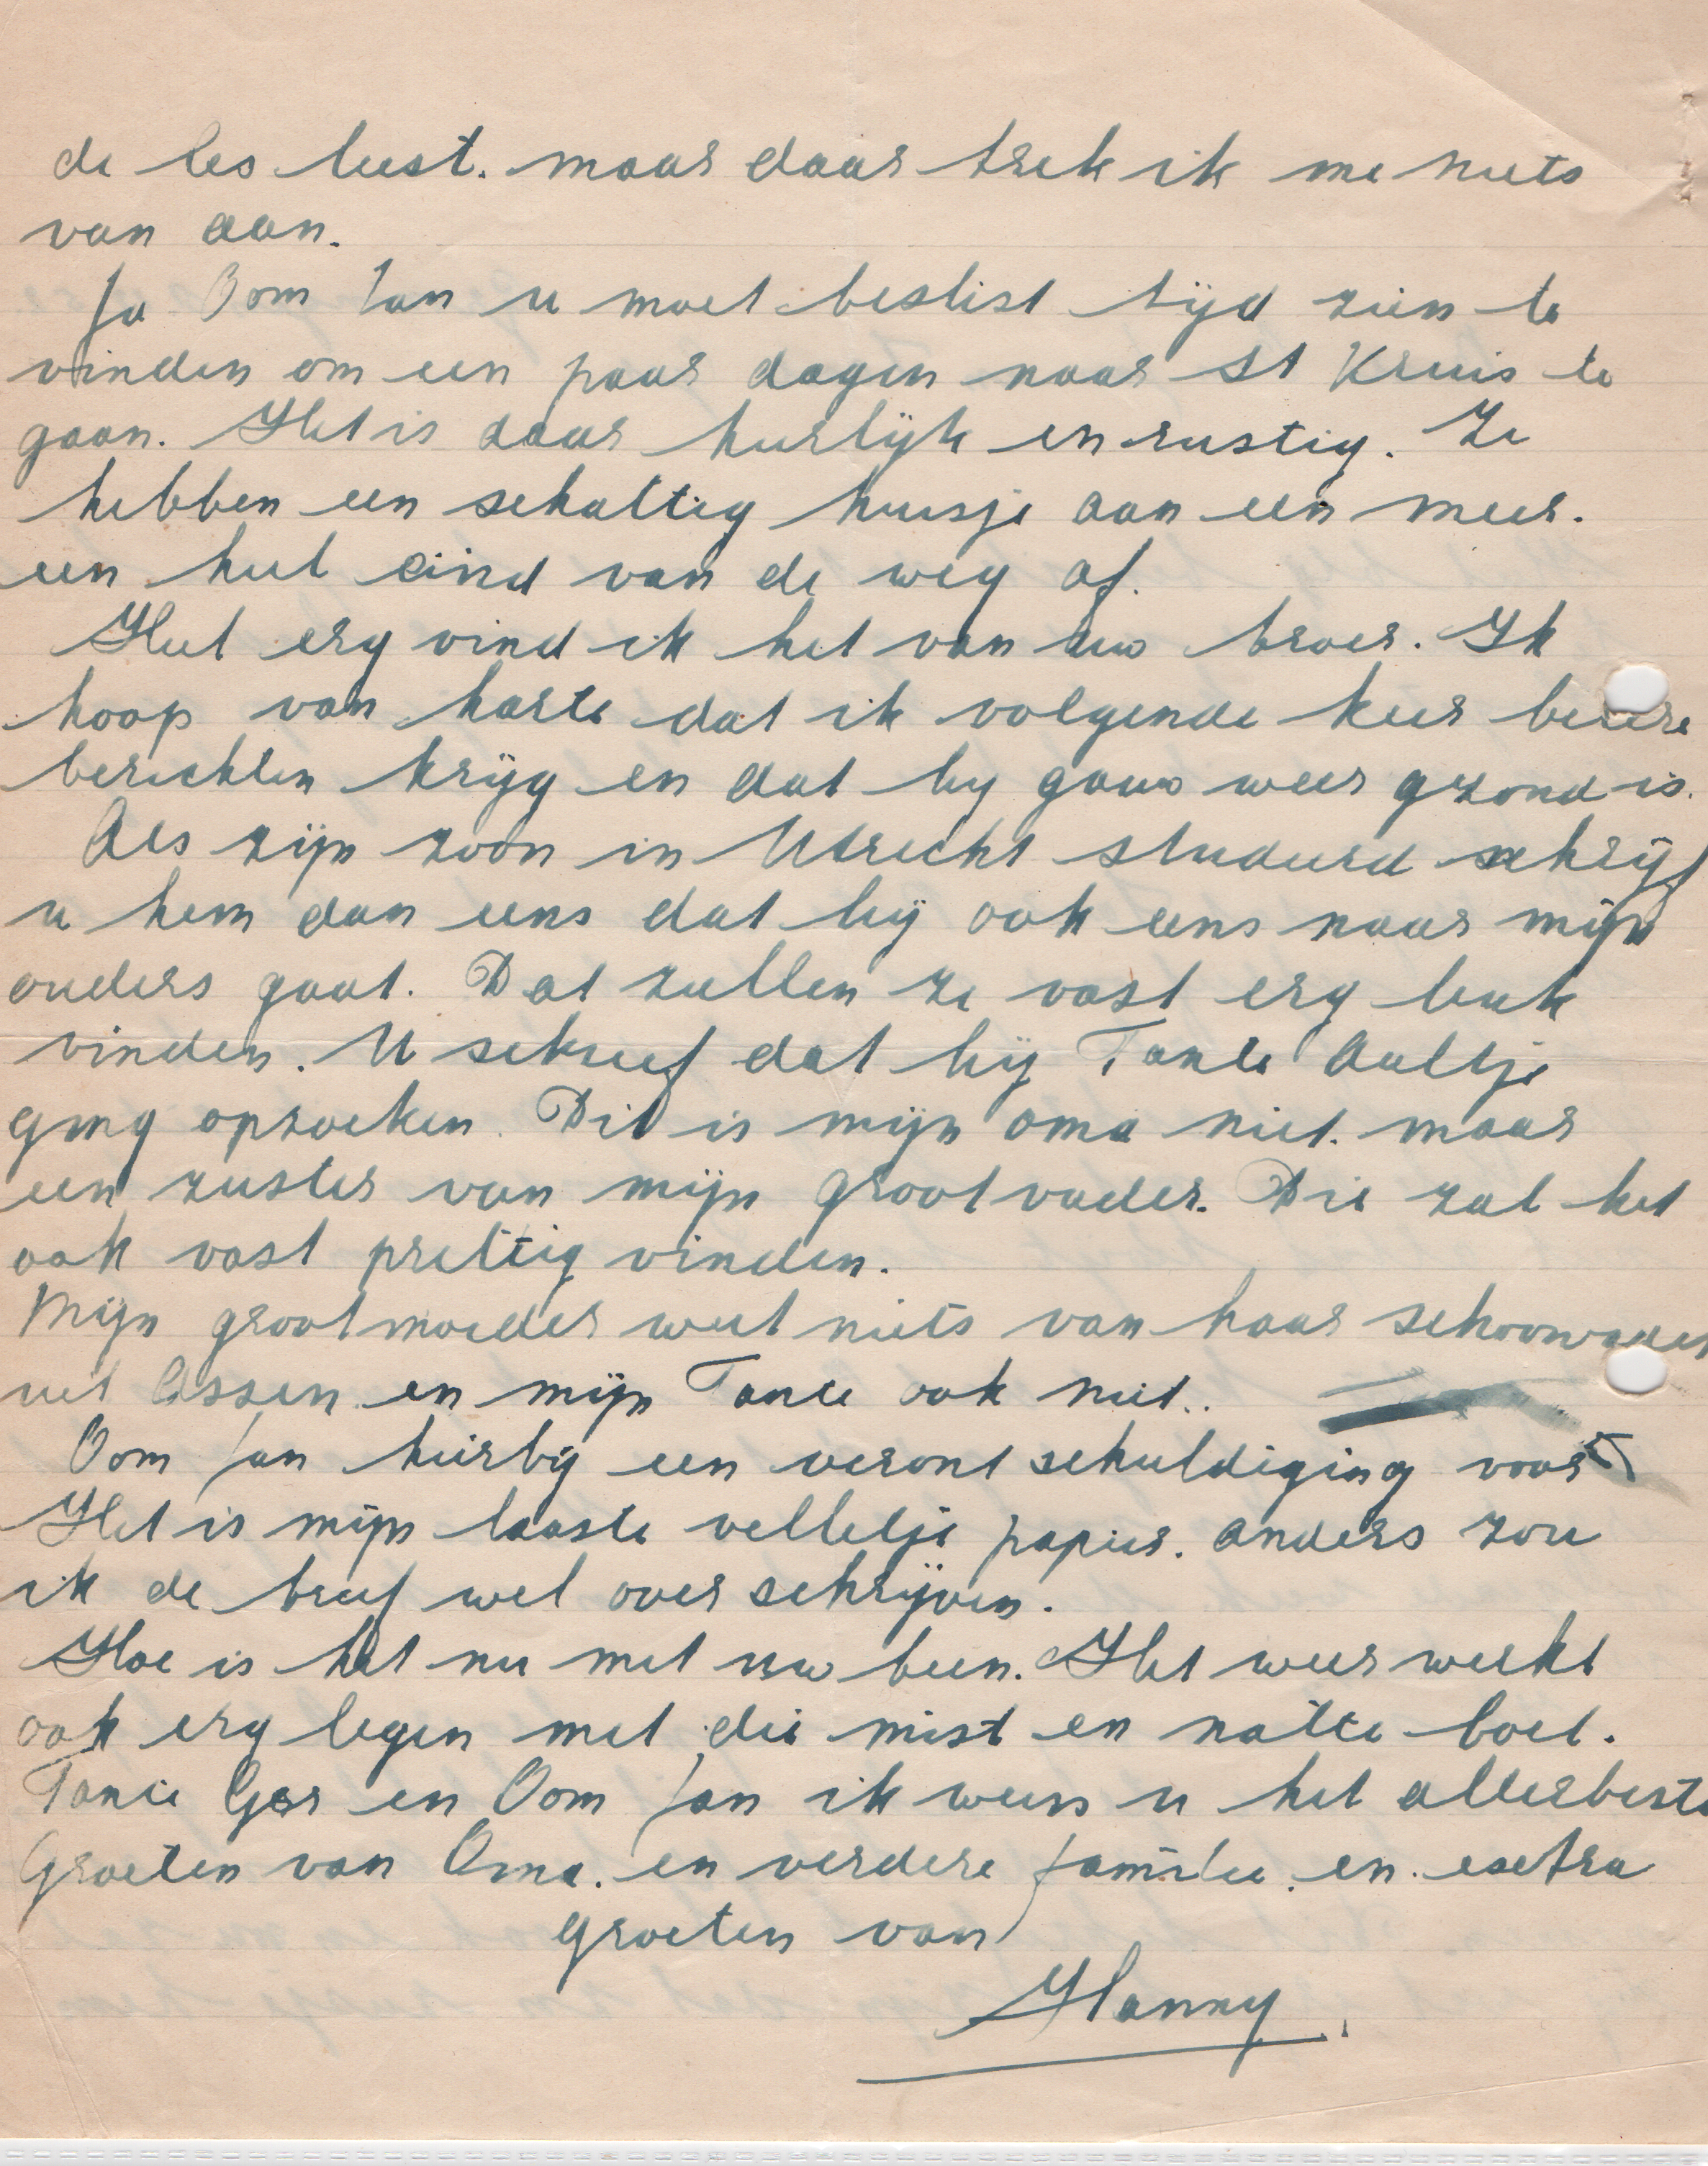 de les leest. maar daar trek ik me niets
van aan.
Ja Oom Jan u moet beslist tijd zien te
vinden om een paar dagen naar St Kruis te
gaan. Het is daar heerlijk en rustig. Ze
hebben een schattig huisje aan een meer.
een heel eind van de weg af.
Heel erg vind ik het van uw broer. Ik
hoop van harte dat ik volgende keer betere
berichten krijg en dat hij gauw weer gezond is.
Als zijn zoon in Utrecht studeerd schrijf
u hem dan eens dat hij ook eens naar mijn
ouders gaat. Dat zullen ze vast erg leuk
vinden. U schreef dat hij Tante Aaltje
ging opzoeken. Dit is mijn oma niet. maar
een zuster van mijn grootvader. Die zal het
ook vast prettig vinden.
Mijn grootmoeder weet niets van haar schoonvader
uit Assen en mijn Tante ook niet..
Oom Jan hierbij een verontschuldiging voor
Het is mijn laaste velletje papier. anders zou
ik de brief wel overschrijven.
Hoe is het nu met uw been. Het weer werkt
ook erg tegen met die mist en natte boel.
Tante Ger en Oom Jan ik wens u het allerbeste
Groeten van Oma. en verdere familie. en. esctra
groeten van
Hanny.